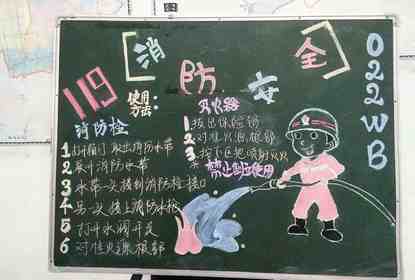 119 [消防安全]
022WB
使用方法:
消防栓
1 打开箱门 取出消防水带
2 展开消防水带
3 水带一头接到消防栓接口
4 另一头接上消防水枪
5 打开水阀开关
6 对准火源根部
灭火器
1. 拔出保险销
2. 对准火焰根部
3. 按下压把喷射灭火
禁止倒立使用